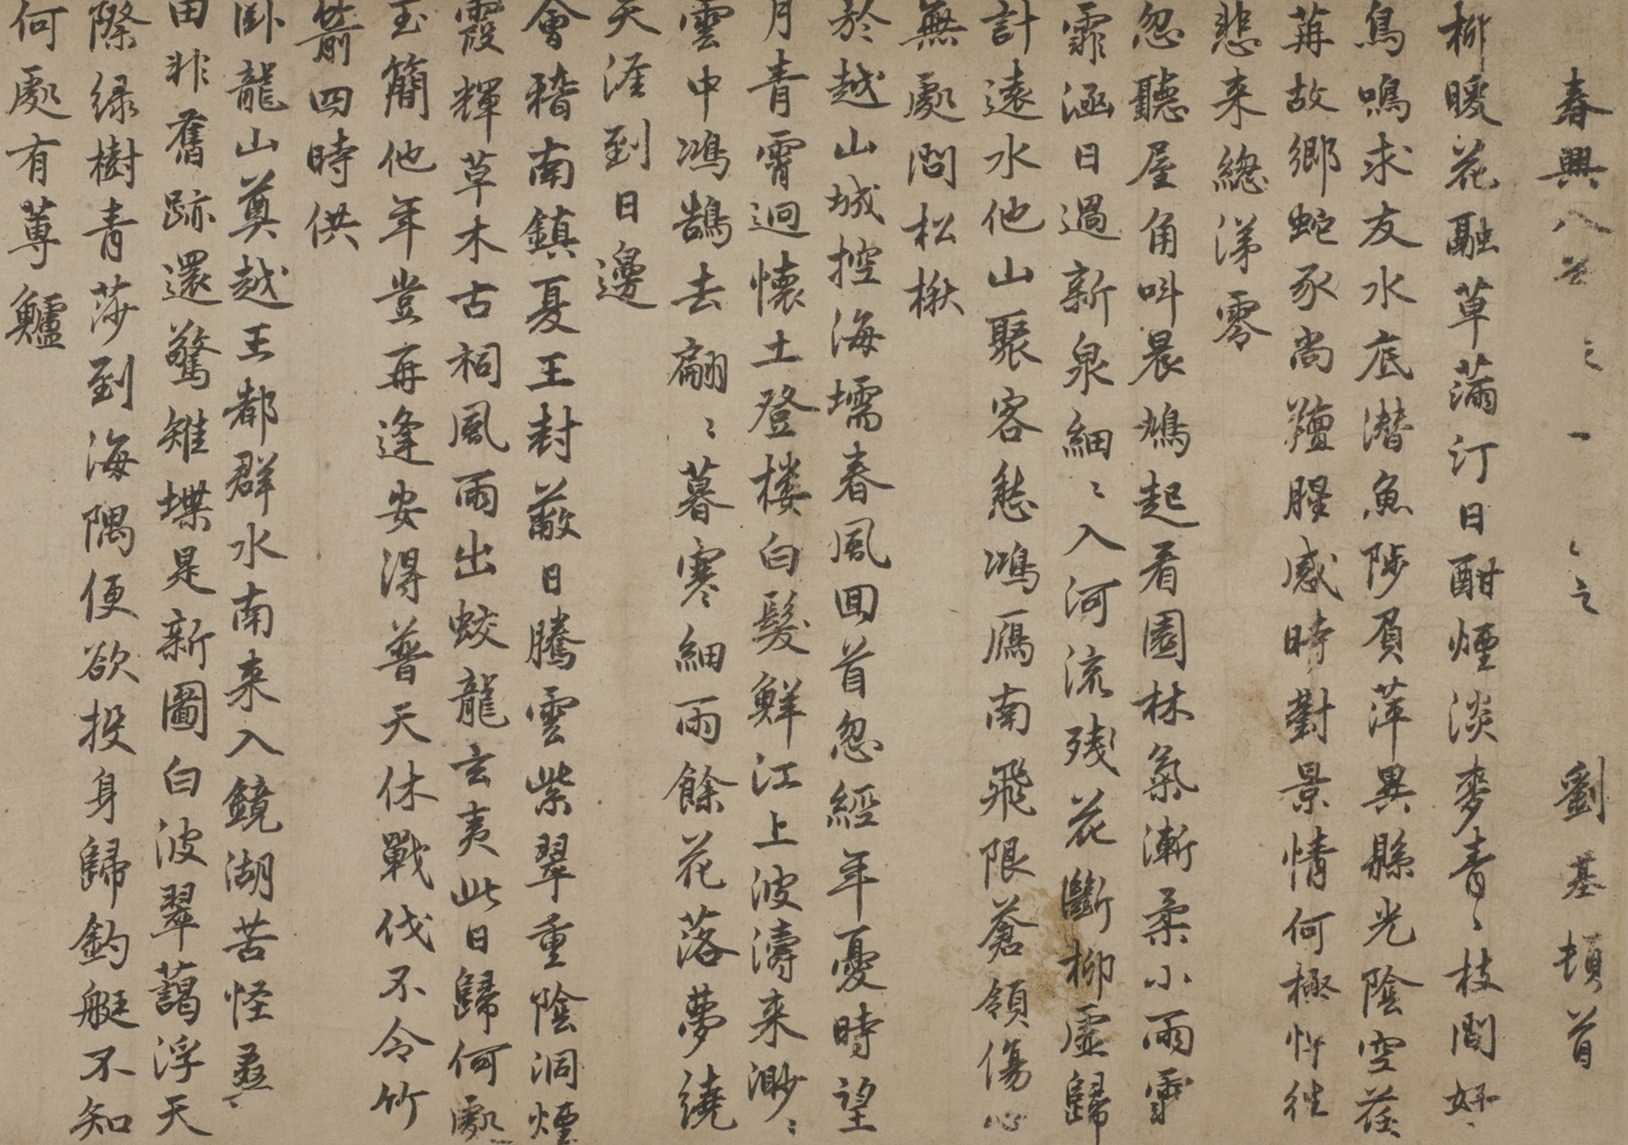 春興八首 劉基頓首
柳暖花融草滿汀日酣煙淡麥青〻枝間好
鳥鳴求友水底潛魚陟負萍異縣光陰空荏
苒故鄉蛇豕尚羶腥感時對景情何極忤往
悲来總涕零
忽聽屋角叫晨鳩起看園林氣漸柔小雨霏
霏涵日過新泉細〻入河流殘花斷柳虛歸
計遠水他山聚客愁鴻鴈南飛限蒼嶺傷心
無處問松楸
於越山城控海壖春風回首忽經年憂時望
月青霄迥懷土登樓白髮鮮江上波濤来渺〻
雲中鴻鵠去翩〻暮寒細雨餘花落夢繞
天涯到日邊
會稽南鎮夏王封蔽日騰雲紫翠重陰洞煙
霞輝草木古祠風雨出蛟龍玄夷此日歸何處
玉簡他年豈再逢安得普天休戰伐不令竹
箭四時供
臥龍山奠越王都群水南来入鏡湖苦怪桑
田非舊跡還驚雉堞是新圖白波翠藹浮天
際綠樹青莎到海隅便欲投身歸釣艇不知
何處有蓴鱸